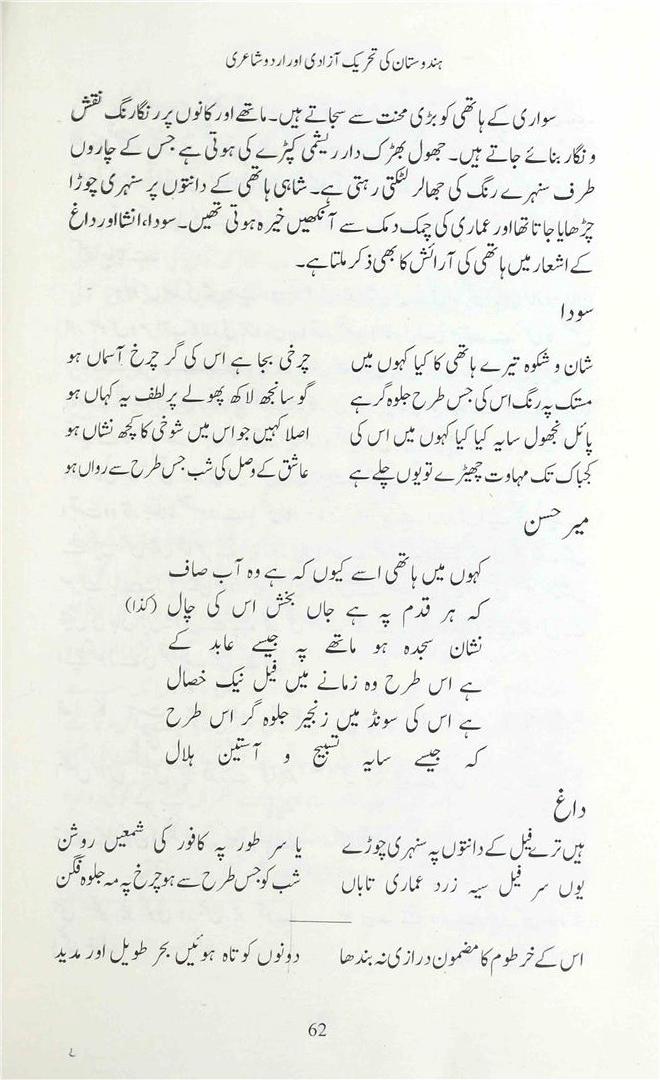 ہندوستان کی تحریک آزادی اور اردو شاعری
سواری کے ہاتھی کو بڑی محنت سے سجاتے ہیں۔ ماتھے اور کانوں پر رنگا رنگ نقش
و نگار بنائے جاتے ہیں۔ جھول بھڑک دار ریشمی کپڑے کی ہوتی ہے جس کے چاروں
طرف سنہرے رنگ کی جھالر لٹکتی رہتی ہے۔ شاہی ہاتھی کے دانتوں پر سنہری چوڑا
چڑھایا جاتا تھا اور عماری کی چمک دمک سے آنکھیں خیرہ ہوتی تھیں۔ سودا، انشا اور داغ
کے اشعار میں ہاتھی کی آرائش کا بھی ذکر ملتا ہے۔
سودا
شان و شکوہ تیرے ہاتھی کا کیا کہوں میں چرخی بجا ہے اس کی گر چرخ آسماں ہو
مستک پہ رنگ اس کی جس طرح جلوہ گر ہے گو سانجھ لاکھ پھولے پر لطف یہ کہاں ہو
پائل نجھول سایہ کیا کیا کہوں میں اس کی اصلا کہیں جو اس میں شوخی کا کچھ نشاں ہو
کجباک تک مہاوت چھیڑے تو یوں چلے ہے عاشق کے وصل کی شب جس طرح سے رواں ہو
میر حسن
کہوں میں ہاتھی اسے کیوں کہ ہے وہ آب صاف
کہ ہر قدم پہ ہے جاں بخش اس کی چال (کذا)
نشان سجدہ ہو ماتھے پہ جیسے عابد کے
ہے اس طرح وہ زمانے میں فیل نیک خصال
ہے اس کی سونڈ میں زنجیر جلوہ گر اس طرح
کہ جیسے سایہ تسبیح و آستین ہلال
داغ
ہیں ترے فیل کے دانتوں پہ سنہری چوڑے یا سر طور پہ کافور کی شمعیں روشن
یوں سر فیل سیہ زرد عماری تاباں شب کو جس طرح سے ہو چرخ پہ مہ جلوہ فگن
اس کے خرطوم کا مضمون درازی نہ بندھا دونوں کوتاہ ہوئیں بحر طویل اور مدید
62